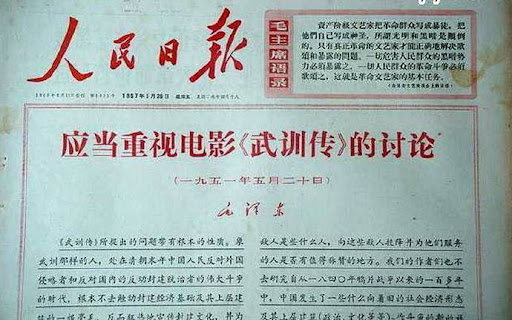 人民日報
毛主席语录
资产阶级文艺家把革命群众写成暴徒，把
他们自己写成神圣，所谓光明和黑暗是颠倒
的。只有真正革命的文艺家才能正确地解决歌
颂和暴露的问题。一切危害人民群众的黑暗势
力必须暴露之，一切人民群众的革命斗争必须
歌颂之，这就是革命文艺家的基本任务。
1967年5月26日 星期五
应当重视电影《武训传》的讨论
（一九五一年五月二十日）
毛泽东
《武训传》所提出的问题带有根本的性质。象
武训那样的人，处在清朝末年中国人民反对外国
侵略者和反对国内的反动封建统治者的伟大斗争
的时代，根本不去触动封建经济基础及其上层建
筑的一根毫毛，反而狂热地宣传封建文化，并为
敌人是些什么人，向这些敌人投降并为他们服务
的人是否有值得称赞的地方。我们的作者们也不
去研究自从一八四〇年鸦片战争以来的一百多年
中，中国发生了一些什么向着旧的社会经济形态
及其上层建筑（政治、文化等等）作斗争的新的